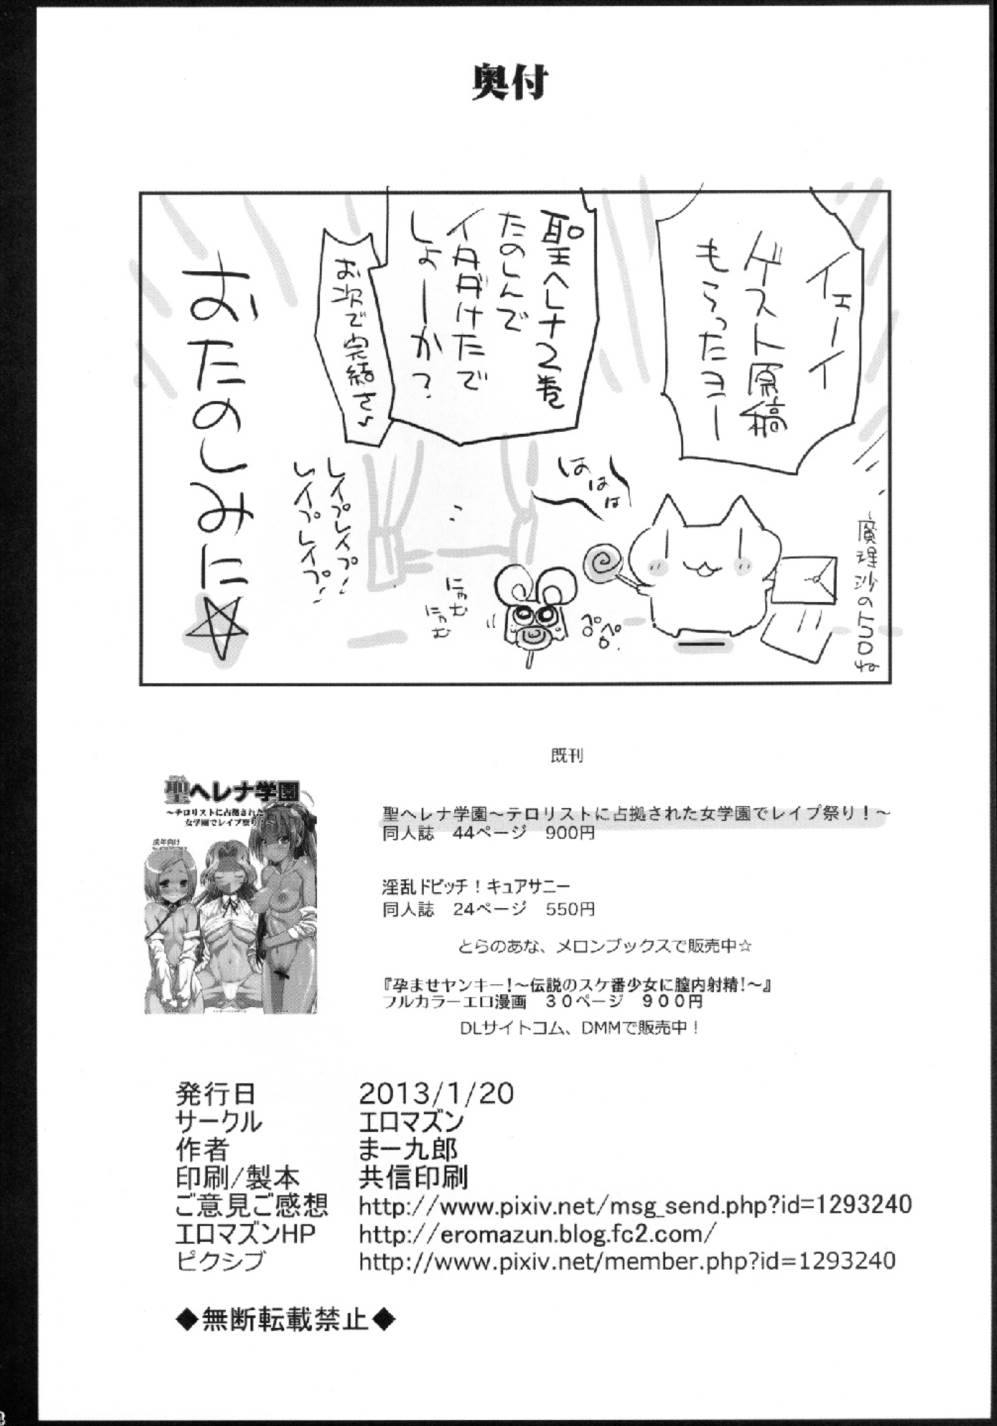 奥付
イェーイ
ゲスト原稿
もらったヨー
聖ヘレナ2巻
たのしんで
イタダけたで
しょーか?
お次で完結さ♪
おたのしみに☆
レイプレイプ!
レイプレイプ!
はははは
にゃむ
にゃむ
ペロペロ
既刊
聖ヘレナ学園
~テロリストに占拠された
女学園でレイプ祭り!~
成年向け
聖ヘレナ学園~テロリストに占拠された女学園でレイプ祭り!~
同人誌 44ページ 900円
淫乱ドビッチ!キュアサニー
同人誌 24ページ 550円
とらのあな、メロンブックスで販売中☆
『孕ませヤンキー!~伝説のスケ番少女に膣内射精!~』
フルカラーエロ漫画 30ページ 900円
DLサイトコム、DMMで販売中!
発行日 2013/1/20
サークル エロマズン
作者 まー九郎
印刷/製本 共信印刷
ご意見ご感想 http://www.pixiv.net/msg_send.php?id=1293240
エロマズンHP http://eromazun.blog.fc2.com/
ピクシブ http://www.pixiv.net/member.php?id=1293240
◆無断転載禁止◆